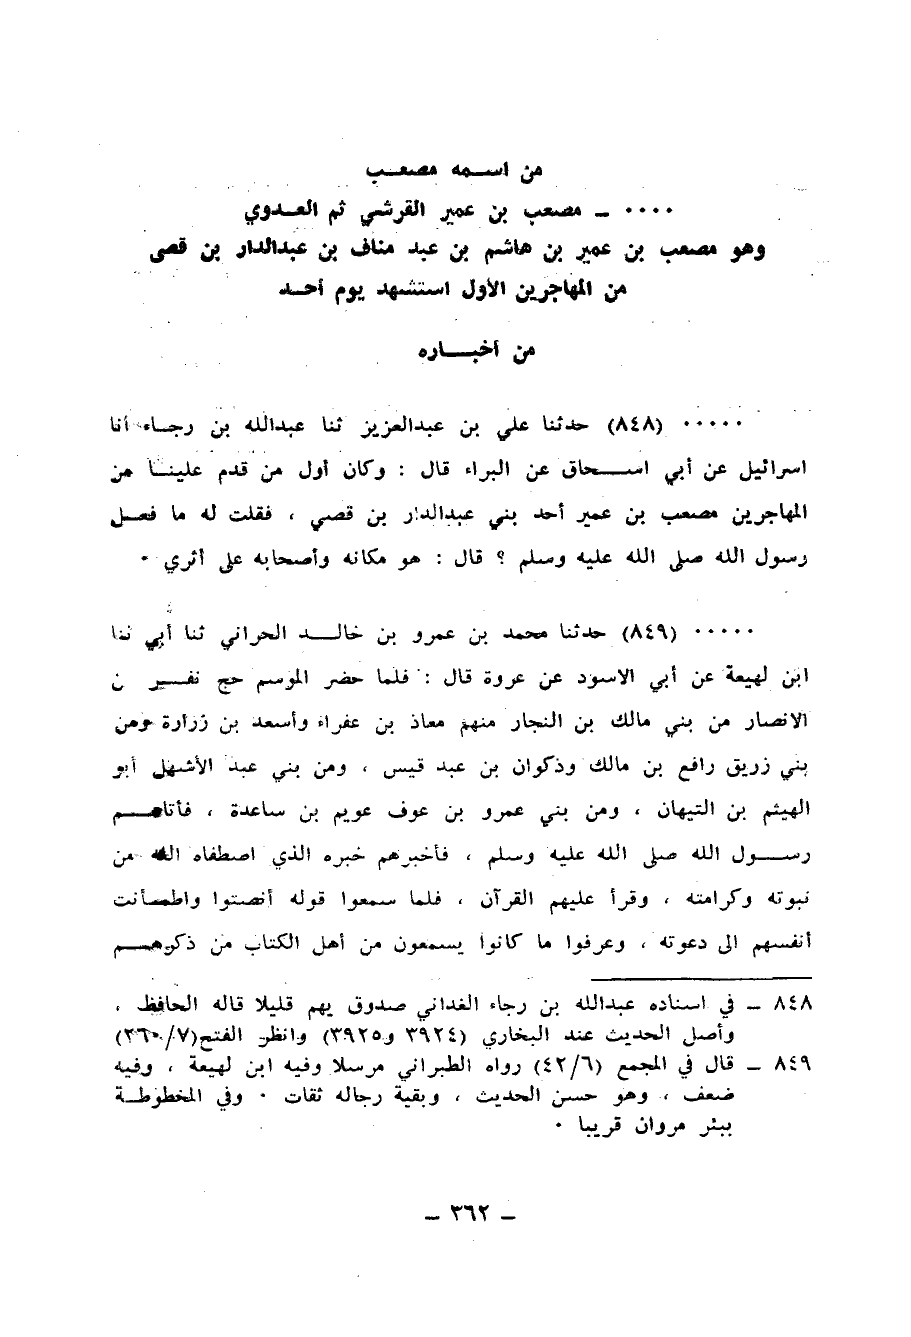 من اسمه مصعب
٠٠٠٠ ـ مصعب بن عمير القرشي ثم العدوي
وهو مصعب بن عمير بن هاشم بن عبد مناف بن عبدالدار بن قصى
من المهاجرين الأول استشهد يوم أحد
من أخباره
٠٠٠٠٠ (٨٤٨) حدثنا علي بن عبدالعزيز ثنا عبدالله بن رجاء أنا
اسرائيل عن أبي اسحاق عن البراء قال : وكان أول من قدم علينا من
المهاجرين مصعب بن عمير أحد بني عبدالدار بن قصي ، فقلت له ما فعل
رسول الله صلى الله عليه وسلم ؟ قال : هو مكانه وأصحابه على أثري ٠
٠٠٠٠٠ (٨٤٩) حدثنا محمد بن عمرو بن خالد الحراني ثنا أبي ثنا
ابن لهيعة عن أبي الاسود عن عروة قال : فلما حضر الموسم حج نفر من
الانصار من بني مالك بن النجار منهم معاذ بن عفراء وأسعد بن زرارة ومن
بني زريق رافع بن مالك وذكوان بن عبد قيس ، ومن بني عبد الأشهل أبو
الهيثم بن التيهان ، ومن بني عمرو بن عوف عويم بن ساعدة ، فأتاهم
رسول الله صلى الله عليه وسلم ، فأخبرهم خبره الذي اصطفاه الله من
نبوته وكرامته ، وقرأ عليهم القرآن ، فلما سمعوا قوله أنصتوا واطمأنت
أنفسهم الى دعوته ، وعرفوا ما كانوا يسمعون من أهل الكتاب من ذكرهم
٨٤٨ ـ في اسناده عبدالله بن رجاء الغداني صدوق يهم قليلا قاله الحافظ ،
وأصل الحديث عند البخاري (٣٩٢٤ و٣٩٢٥) وانظر الفتح(٢٦٠/٧)
٨٤٩ ـ قال في المجمع (٤٢/٦) رواه الطبراني مرسلا وفيه ابن لهيعة ، وفيه
ضعف ، وهو حسن الحديث ، وبقية رجاله ثقات ٠ وفي المخطوطة
ببئر مروان قريبا ٠
ـ ٣٦٢ ـ